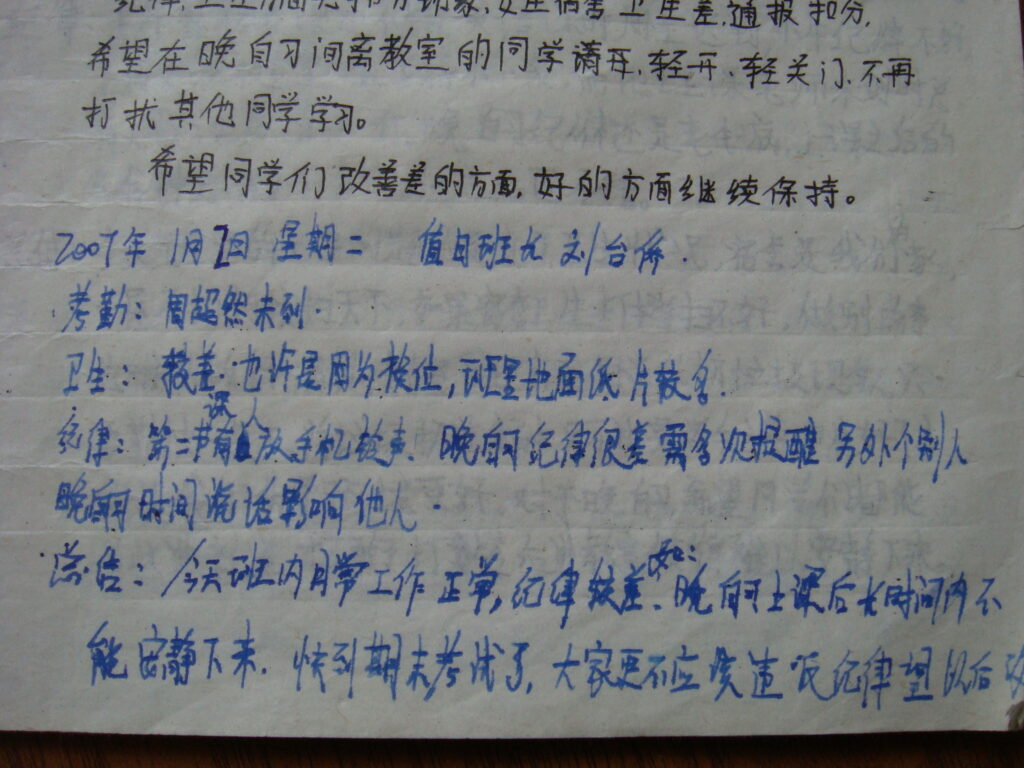 女生宿舍卫生差,通报扣分,
希望在晚自习间离教室的同学请开、轻开、轻关门、不再
打扰其他同学学习。
希望同学们改善差的方面,好的方面继续保持。
2007年1月2日 星期二 值日班长 刘台侨.
考勤: 周超然未到.
卫生: 较差.也许是因为换位,班里地面纸片较多.
纪律: 第二节课有人放手机铃声. 晚自习纪律很差需多次提醒 另外个别人
晚自习时间说话影响他人.
总结: 今天班内日常工作正常,纪律较差.如:晚自习上课后长时间内不
能安静下来. 快到期末考试了,大家更不应该违反纪律望以后